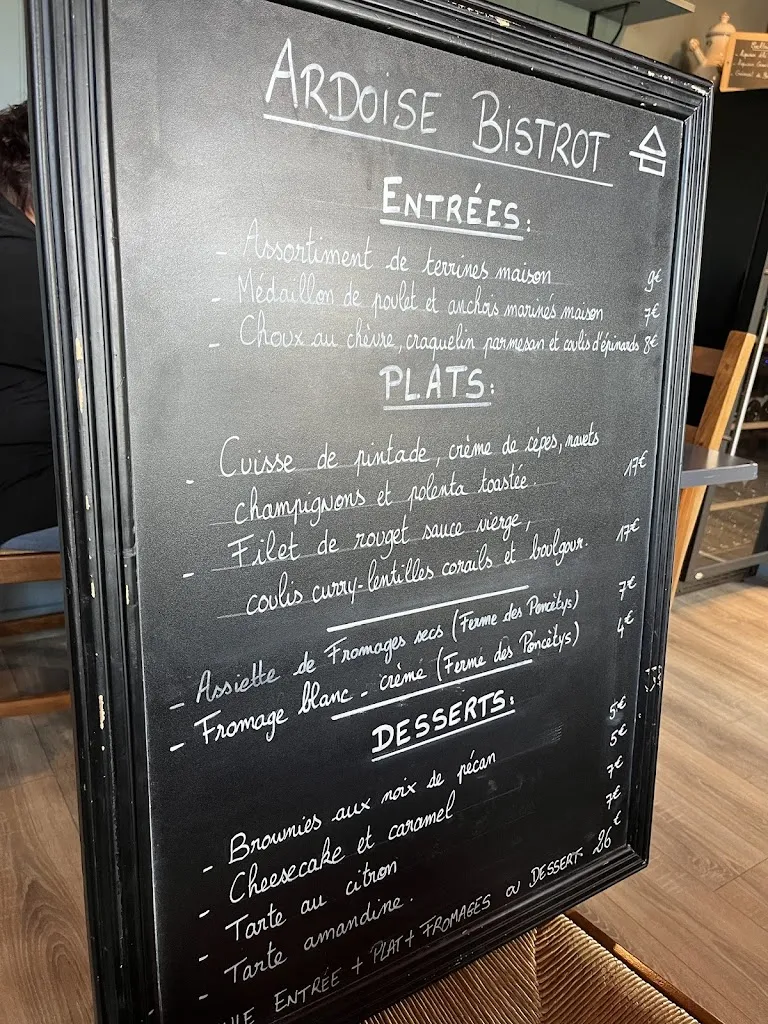 ARDOISE BISTROT
ENTRÉES:
- Assortiment de terrines maison 9€
- Médaillon de poulet et anchois marinés maison 7€
- Choux au chèvre, craquelin parmesan et coulis d'épinards 8€
PLATS:
- Cuisse de pintade, crème de cépes, navets
champignons et polenta toastée. 17€
- Filet de rouget sauce vierge,
coulis curry-lentilles corails et boulgour. 17€
- Assiette de Fromages secs (Ferme des Poncètys) 7€
- Fromage blanc - crème (Ferme des Poncètys) 4€
DESSERTS:
- Brownies aux noix de pécan 5€
- Cheesecake et caramel 5€
- Tarte au citron 7€
- Tarte amandine. 7€
ENTRÉE + PLAT + FROMAGES OU DESSERT 26€